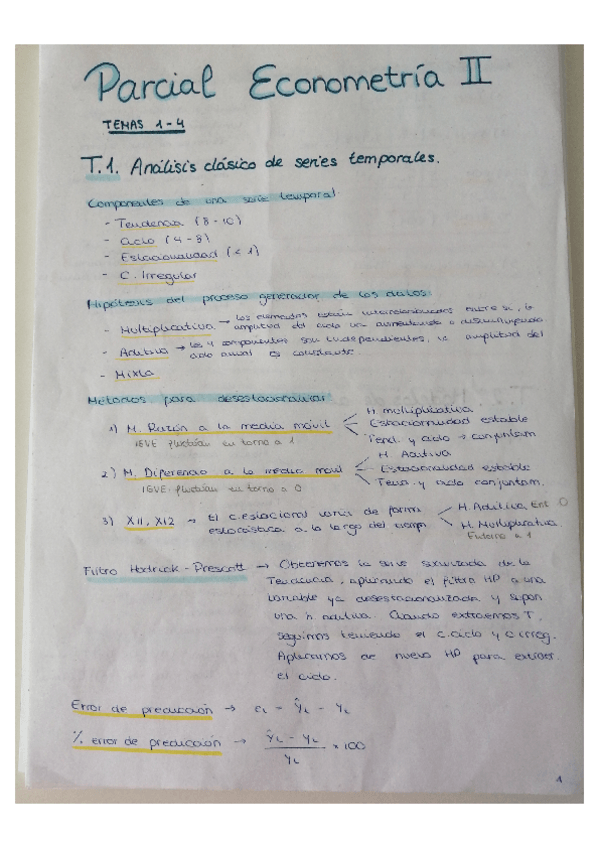 Parcial Econometría II
TEMAS 1-4
T.1. Análisis clásico de series temporales.
Componentes de una serie temporal
- Tendencia (8-10)
- Ciclo (4-8)
- Estacionalidad (< 1)
- C. Irregular
Hipótesis del proceso generador de los datos:
- Multiplicativa → los elementos están interrelacionados entre sí, la
amplitud del ciclo va aumentando o disminuyendo
- Aditiva → los 4 componentes son independientes, la amplitud del
ciclo anual es constante.
- Mixta
Métodos para desestacionalizar
1) M. Razón a la media móvil
H. multiplicativa
Estacionalidad estable
Tend. y ciclo → conjuntam
IEVE fluctúan en torno a 1
2) M. Diferencia a la media móvil
H. Aditiva
Estacionalidad estable
Tend. y ciclo conjuntam.
IGVE fluctúan en torno a 0
3) X11, X12 → El c. estacional varía de forma
estocástica a lo largo del tiempo
H. Aditiva Ent 0
H. Multiplicativa
Entorno a 1
Filtro Hodrick-Prescott → Obtenemos la serie suavizada de la
Tendencia, aplicando el filtro HP a una
variable ya desestacionalizada y supon
una h. aditiva. Cuando extraemos T,
seguimos teniendo el c. ciclo y c irreg.
Aplicamos de nuevo HP para extraer
el ciclo.
Error de predicción → e_t = ŷ_t - y_t
% error de predicción → (ŷ_t - y_t) / y_t × 100
1